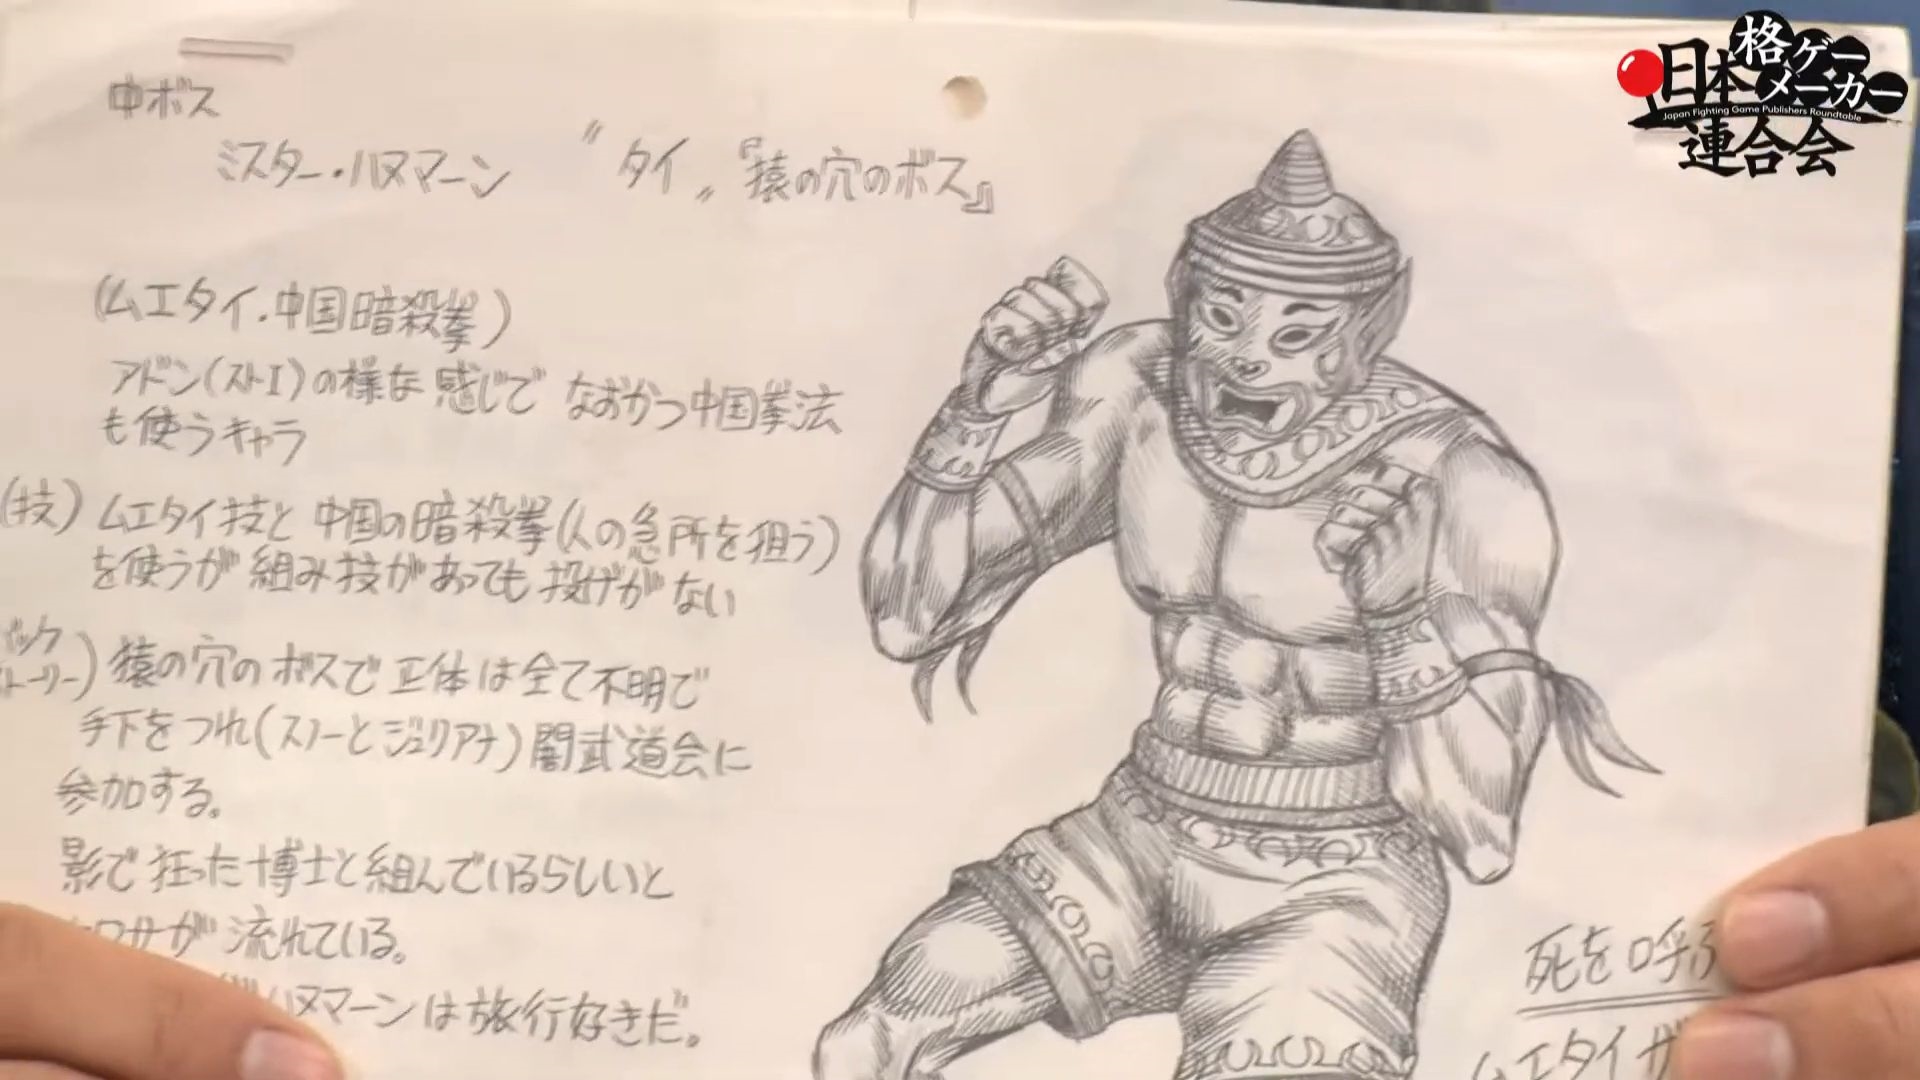 中ボス
ミスター・ハヌマーン 〝タイ〟『猿の穴のボス』
(ムエタイ.中国暗殺拳)
アドン(ストI)の様な感じで なおかつ中国拳法
も使うキャラ
(技) ムエタイ技と 中国の暗殺拳(人の急所を狙う)
を使うが 組み技があっても 投げがない
バック
ストーリー) 猿の穴のボスで 正体は全て不明で
手下をつれ(スノーとジュリアナ)闇武道会に
参加する。
影で狂った博士と組んでいるらしいと
ウワサが流れている。
ハヌマーンは旅行好きだ。
死を呼ぶ
ムエタイ
日本格ゲーメーカー連合会
Japan Fighting Game Publishers Roundtable